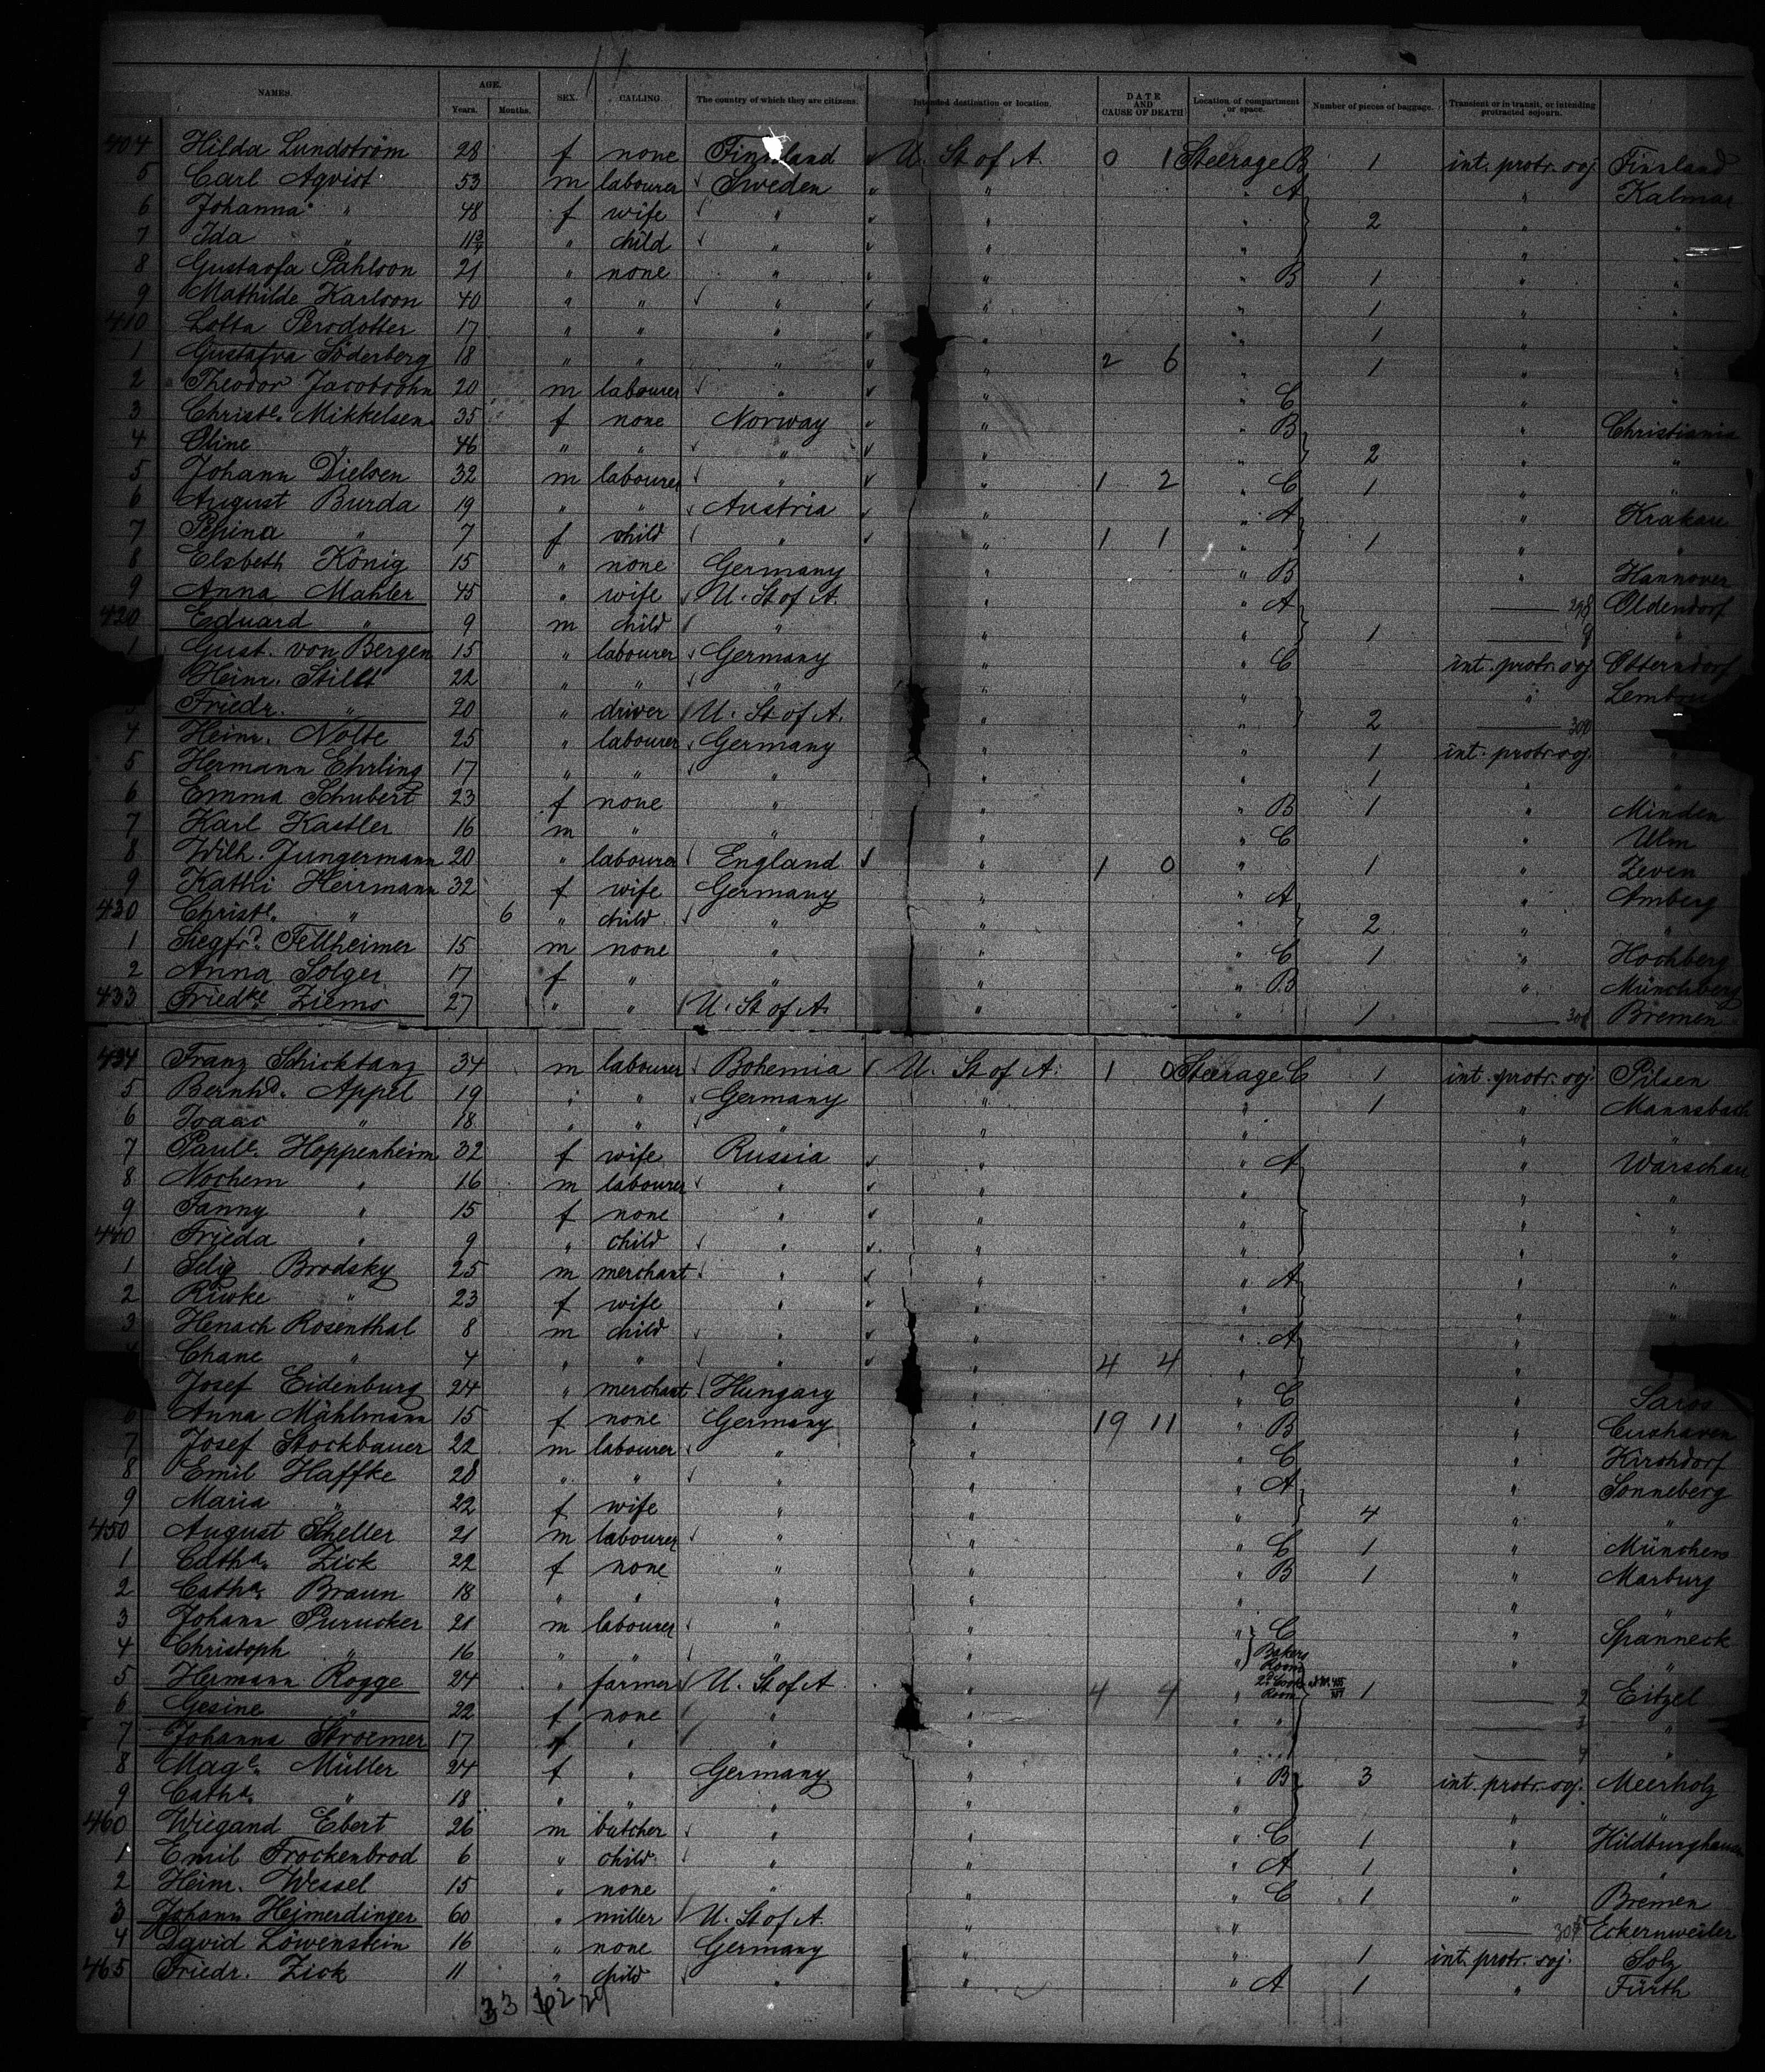 NAMES. AGE. Years. Months. SEX. CALLING. The country of which they are citizens. Intended destination or location. DATE AND CAUSE OF DEATH Location of compartment or space. Number of pieces of baggage. Transient or in transit, or intending protracted sojourn.
404 Hilda Lundström 28 f none Finnland U. St of A. 0 1 Steerage B 1 int. protr. soj. Finnland
5 Carl Aqvist 53 m labourer Sweden " " A " Kalmar
6 Johanna " 48 f wife " " " 2 " "
7 Ida " 11 3/4 " child " " " " "
8 Gustaafa Pahlson 21 " none " " " B 1 " "
9 Mathilde Karlson 40 " " " " " 1 " "
410 Lotta Persdotter 17 " " " " " 1 " "
1 Gustafva Söderberg 18 " " " " 2 6 " 1 " "
2 Theodor Jacobsohn 20 m labourer " " " C " "
3 Christe. Mikkelsen 35 f none Norway " " B " Christiania
4 Oline " 46 " " " " " 2 " "
5 Johann Dielsen 32 m labourer " " 1 2 " C 1 " "
6 August Burda 19 " " Austria " " A " Krakau
7 Pepina " 7 f child " " 1 1 " 1 " "
8 Elsbeth König 15 " none Germany " " B " Hannover
9 Anna Mahler 45 " wife U. St of A. " " A 298 Oldendorf
420 Eduard " 9 m child " " " 1 9 "
1 Gust. von Bergen 15 " labourer Germany " " C int. protr. soj. Otterndorf
Heinr. Stillt 22 " " " " " "
3 Friedr. " 20 " driver U. St of A. " " 2 300
4 Heinr. Nolte 25 " labourer Germany " " 1 int. protr. soj. "
5 Hermann Ehrling 17 " " " " " 1 " "
6 Emma Schubert 23 f none " " " B 1 " Minden
7 Karl Kastler 16 m " " " " C " Ulm
8 Wilh. Jungermann 20 " labourer England " 1 0 " 1 " Zeven
9 Kathi Heirmann 32 f wife Germany " " A " Amberg
430 Christe. " 6 " child " " " 2 " "
1 Siegfrd. Fellheimer 15 m none " " " C 1 " Hochberg
2 Anna Solger 17 f " " " " B " Münchberg
433 Friedke Ziems 27 " " U. St of A. " " 1 301 Bremen
434 Franz Schicktanz 34 m labourer Bohemia U. St of A. 1 0 Steerage C 1 int. protr. soj. Pilsen
5 Bernhd. Appel 19 " " Germany " " 1 " Mannsbach
6 Isaac " 18 " " " " " " "
7 Paule. Hoppenheim 32 f wife Russia " " A " Warschau
8 Nochem " 16 m labourer " " " " "
9 Fanny " 15 f none " " " " "
440 Frieda " 9 " child " " " " "
1 Selig Brodsky 25 m merchant " " " A " "
2 Riwke " 23 f wife " " " " "
3 Henach Rosenthal 8 m child " " " A "
Chane " 4 " " " " 4 4 " "
Josef Eidenburg 24 " merchant Hungary " " C " Saros
6 Anna Mählmann 15 f none Germany " 19 11 " B " Cuxhaven
7 Josef Stockbauer 22 m labourer " " " C " Kirchdorf
8 Emil Haffke 28 " " " " " A " Sonneberg
9 Maria " 22 f wife " " " 4 " "
450 August Scheller 21 m labourer " " " C 1 " München
1 Catha. Zick 22 f none " " " B 1 " Marburg
2 Catha. Braun 18 " " " " " " "
3 Johann Purucker 21 m labourer " " " C " Spanneck
4 Christoph " 16 " " " " " Bakers Room " "
5 Hermann Rogge 24 " farmer U. St of A " 4 4 " 2d Cook Room 1 2 Eitzel
6 Gesine " 22 f none " " " " 3 "
7 Johanna Stroemer 17 f " " " " 4 "
8 Mage. Müller 24 f " Germany " " B 3 int. protr. soj. Meerholz
9 Catha. " 18 " " " " " " "
460 Wiegand Ebert 26 m butcher " " " C 1 " Hildburghausen
1 Emil Trockenbrod 6 " child " " " A 1 " "
2 Heinr. Wessel 15 " none " " " C 1 " Bremen
3 Johann Heimerdinger 60 " miller U. St of A. " " 305 Eckernweiler
4 David Löwenstein 16 " none Germany " " 1 int. protr. soj. Solz
465 Friedr. Zick 11 " child " " " A 1 " Fürth
33